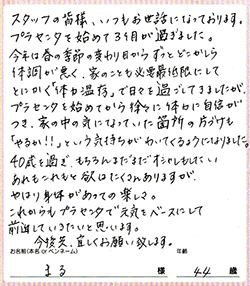 スタッフの皆様、いつもお世話になっております。
プラセンタを始めて3ヶ月が過ぎました。
今年は春の季節の変わり目からずっとどこかしら
体調が悪く、家のことも必要最低限にして
とにかく「体力温存」で日々を過ごしてきましたが、
プラセンタを始めてから徐々に体力に自信が
つき、家の中の気になっていた箇所の片づけも
「やるか!!」という気持ちがわいてくるようになりました。
40歳を過ぎ、もちろんまだまだオシャレもしたい
あれもこれもと欲はたくさんありますが、
やはり身体があっての楽しさ。
これからもプラセンタで元気をベースにして
前進していきたいと思います。
今後共、宜しくお願い致します。
お名前(本名 or ペンネーム) 年齢
まる 様 44 歳